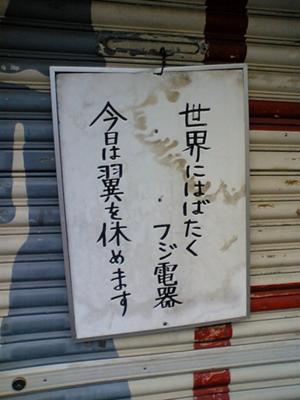 世界にはばたく
フジ電器
今日は翼を休めます